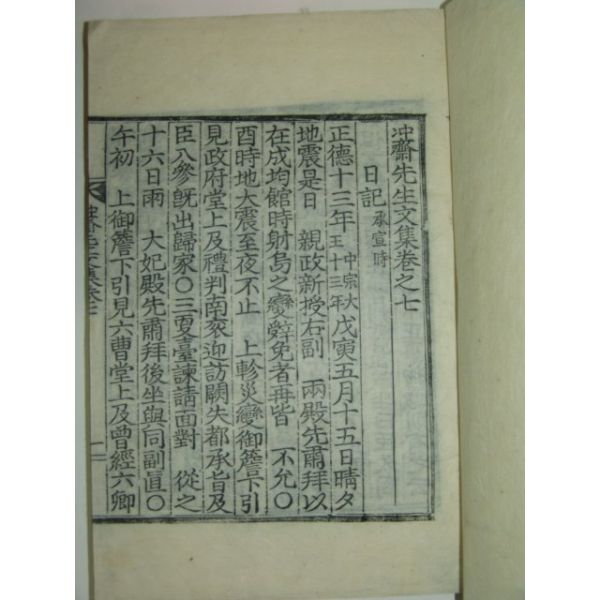 冲齋先生文集卷之七
日記 承宣時
正德十三年 中宗大王十三年 戊寅五月十五日晴夕
地震是日 親政新授右副 兩殿先肅拜以
在成均館時射島之變辭免者再皆 不允〇
酉時地大震至夜不止 上軫災變御簷下引
見政府堂上及禮判南袞迎訪闕失都承旨及
臣入參旣出歸家〇三更臺諫請面對 從之
十六日雨 大妃殿先肅拜後坐與同副直〇
午初 上御簷下引見六曹堂上及曾經六卿
冲齋先生文集卷七 一